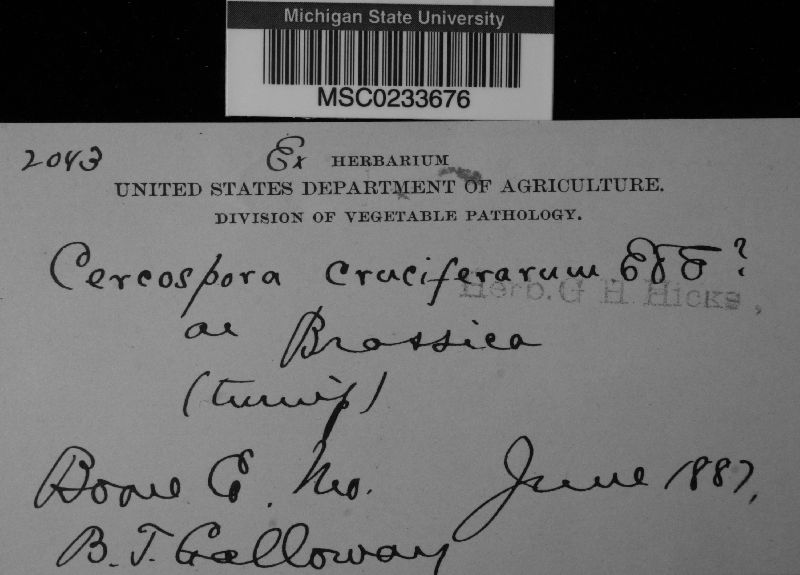 Michigan State University
MSC0233676
2043 Ex HERBARIUM
UNITED STATES DEPARTMENT OF AGRICULTURE.
DIVISION OF VEGETABLE PATHOLOGY.
Cercospora cruciferarum E & E ?
Herb. G H Hicks,
on Brassica
(turnip)
Boone C. Mo. June 1887,
B. T. Galloway